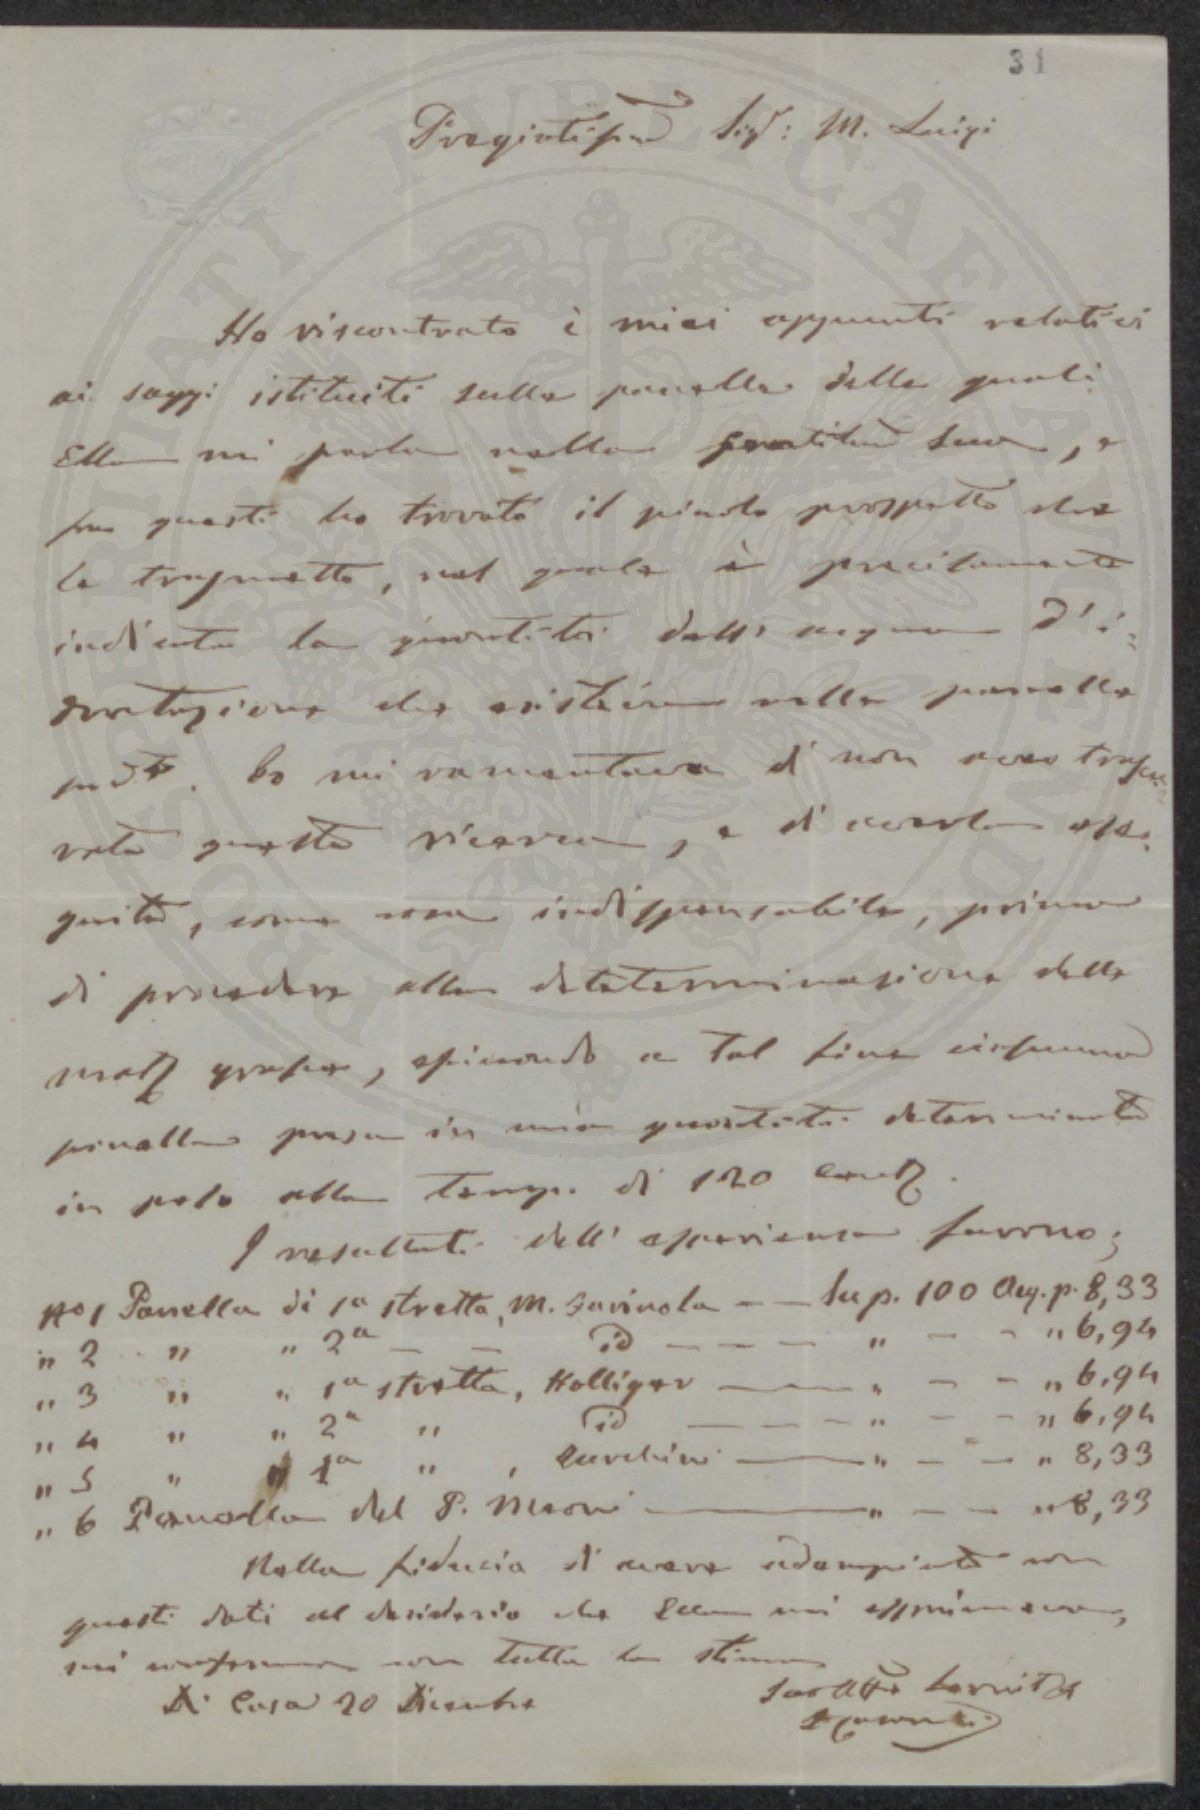 31
Pregiatissmo Sigr: M. Luigi
Ho riscontrato i miei appunti relativi
ai saggi istituiti sulle panelle delle quali
Ella mi parla nella sua, e
fra questi ho trovato il piccolo prospetto che
le trasmetto, nel quale è precisamente
indicata la quantità dell'acqua d'i=
dratazione che esisteva nelle panelle
pdte. Io mi ramentava di non aver trascu
rata questa ricerca, e di averla ese=
guita, come cosa indispensabile, prima
di procedere alla deteterminazione delle
mat grasse, essicando a tal fine ciascuna
panella presa in una quantità determinata
in peso alla temp. di 120 cent.
I resultati dell'esperienza furono;
No 1 Panella di 1a stretta, M. Savinola — — Su p. 100 Acq. p. 8,33
" 2 " " 2a — — id — — — — " — — " 6,94
" 3 " " 1a stretta, Holliger — " — — " 6,94
" 4 " " 2a " id — — — — " — — " 6,94
" 5 " " 1a " , — " — — " 8,33
" 6 Panella del P. — " — — " 8,33
Nella fiducia di avere adempiuto con
questi dati al desiderio che Ella mi esprimeva,
mi confermo con tutta la stima
Di Casa 20 Dicembre
Suo